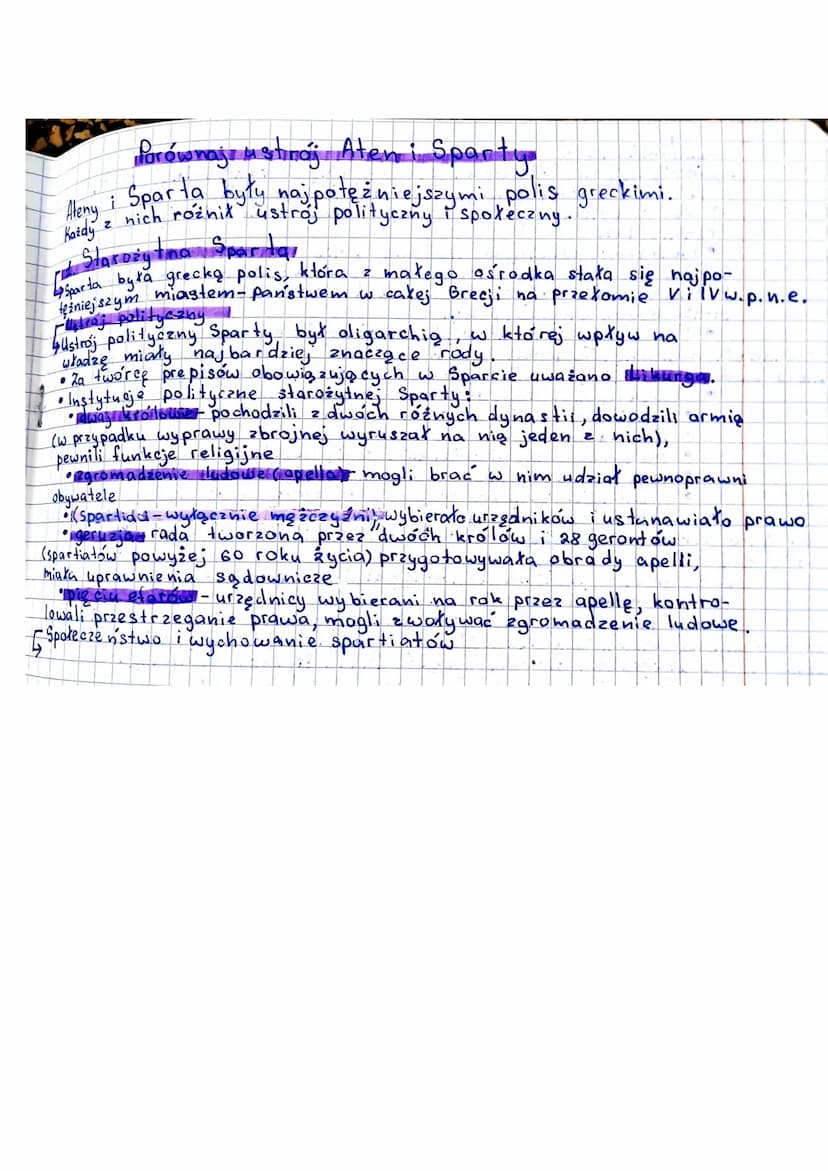 Porównaj ustrój Aten i Sparty
Ateny i Sparta były najpotężniejszymi polis greckimi.
Każdy z nich różnił ustrój polityczny i społeczny.
1. Starożytna Sparta
Sparta była grecką polis, która z małego ośrodka stała się najpo-
tężniejszym miastem-państwem w całej Grecji na przełomie V i IV w.p.n.e.
Ustrój polityczny
Ustrój polityczny Sparty był oligarchią, w której wpływ na
władzę miały najbardziej znaczące rody.
• Za twórcę prepisów obowiązujących w Sparcie uważano Likurga.
• Instytucje polityczne starożytnej Sparty:
• dwaj królowie - pochodzili z dwóch różnych dynastii, dowodzili armią
(w przypadku wyprawy zbrojnej wyruszał na nią jeden z nich),
pewnili funkcje religijne
• zgromadzenie ludowe (apella) - mogli brać w nim udział pewnoprawni
obywatele
• (Spartiaci - wyłącznie mężczyźni), wybierało urzędników i ustanawiało prawo
• geruzja - rada tworzona przez "dwóch królów i 28 gerontów
(spartiatów powyżej 60 roku życia) przygotowywała obrady apelli,
miała uprawnienia sądownicze
• pięciu eforów - urzędnicy wybierani na rok przez apellę, kontro-
lowali przestrzeganie prawa, mogli zwoływać zgromadzenie ludowe.
Społeczeństwo i wychowanie spartiatów